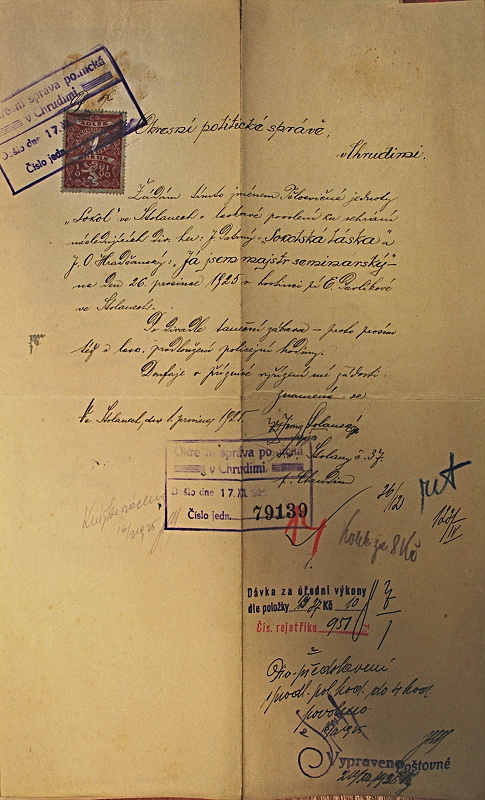 Okresní správa politická
v Chrudimi
Došlo dne 17.
Číslo jedn.
KOLEK
Okresní politické správě,
v Chrudimi.
Žádám tímto jménem Tělocvičné jednoty
„Sokol" ve Stolanech o laskavé povolení ku sehrání
následujících div. her: J. „Sokolská láska" a
J. O. Hradčanský: „Já jsem majstr seminarský"
na den 26. prosince 1925 v hostinci pí E. Pavlíkové
ve Stolanech.
Po divadle taneční zábava – proto prosím
též o lask. prodloužení policejní hodiny.
Doufaje v příznivé vyřízení mé žádosti
znamená se
Ve Stolanech, dne 1. prosince 1925.
Stolany č. 37.
Okresní správa politická
v Chrudimi.
Došlo dne 17. XII. 192
Číslo jedn. 79139
26/12
Kolek za 8 Kč
Dávka za úřední výkony
dle položky Kč 10
Čís. rejstříku 951
Div. představení
1 prodl. pol. hod. do 4 hod.
povoleno
Vypraveno poštovné